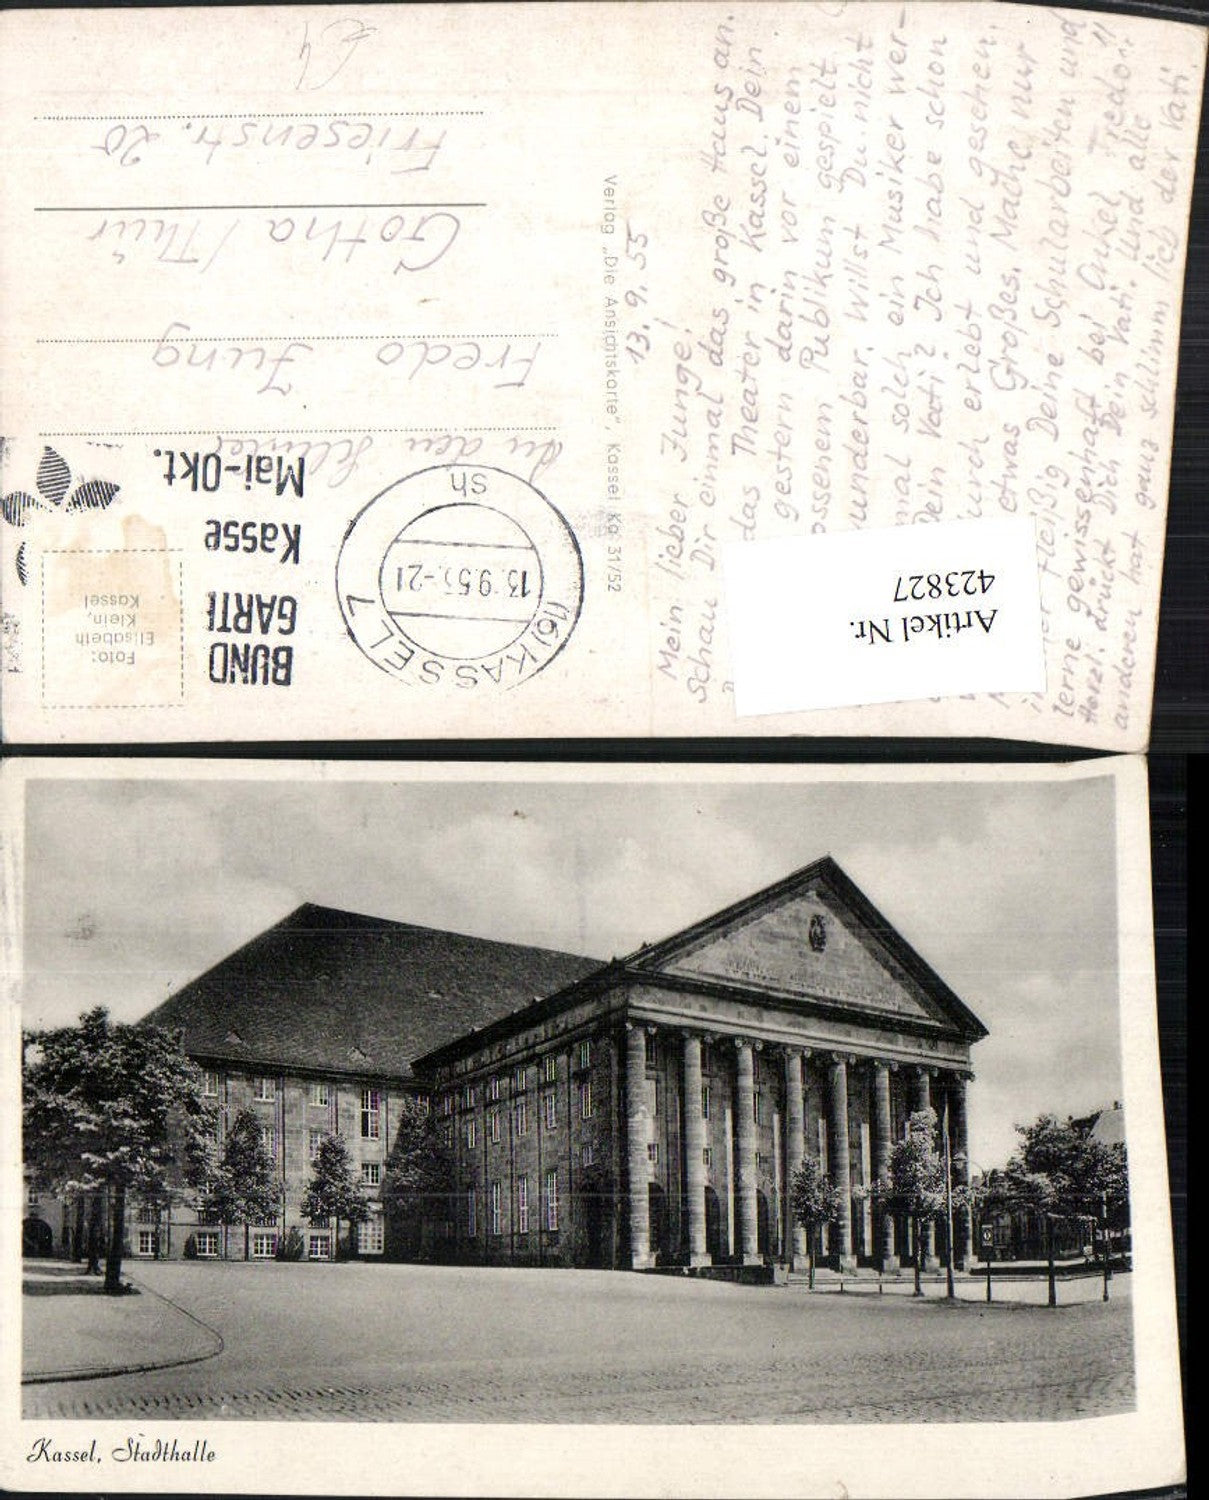 13. 9. 55
Mein lieber Junge!
Schau Dir einmal das große Haus an.
das Theater in Kassel. Dein
gestern darin vor einem
ossenem Publikum gespielt.
wunderbar. Willst Du nicht
mal solch ein Musiker wer-
Dein Vati? Ich habe schon
durch erlebt und gesehen.
etwas Großes. Mache nur
fleißig Deine Schularbeiten und
lerne gewissenhaft bei Onkel Fredo!!
Herzl. drückt Dich Dein Vati. Und alle
anderen hat ganz schlimm lieb der Vati.
Verlag „Die Ansichtskarte", Kassel Ka 31/52
(16) KASSEL 7
13.9.55.-21
sh
BUND
GARTE
Kasse
Mai-Okt.
Foto:
Elisabeth
Klein,
Kassel
An den
Fredo Jung
Gotha/Thür
Friesenstr. 20
Artikel Nr.
423827
Kassel, Stadthalle